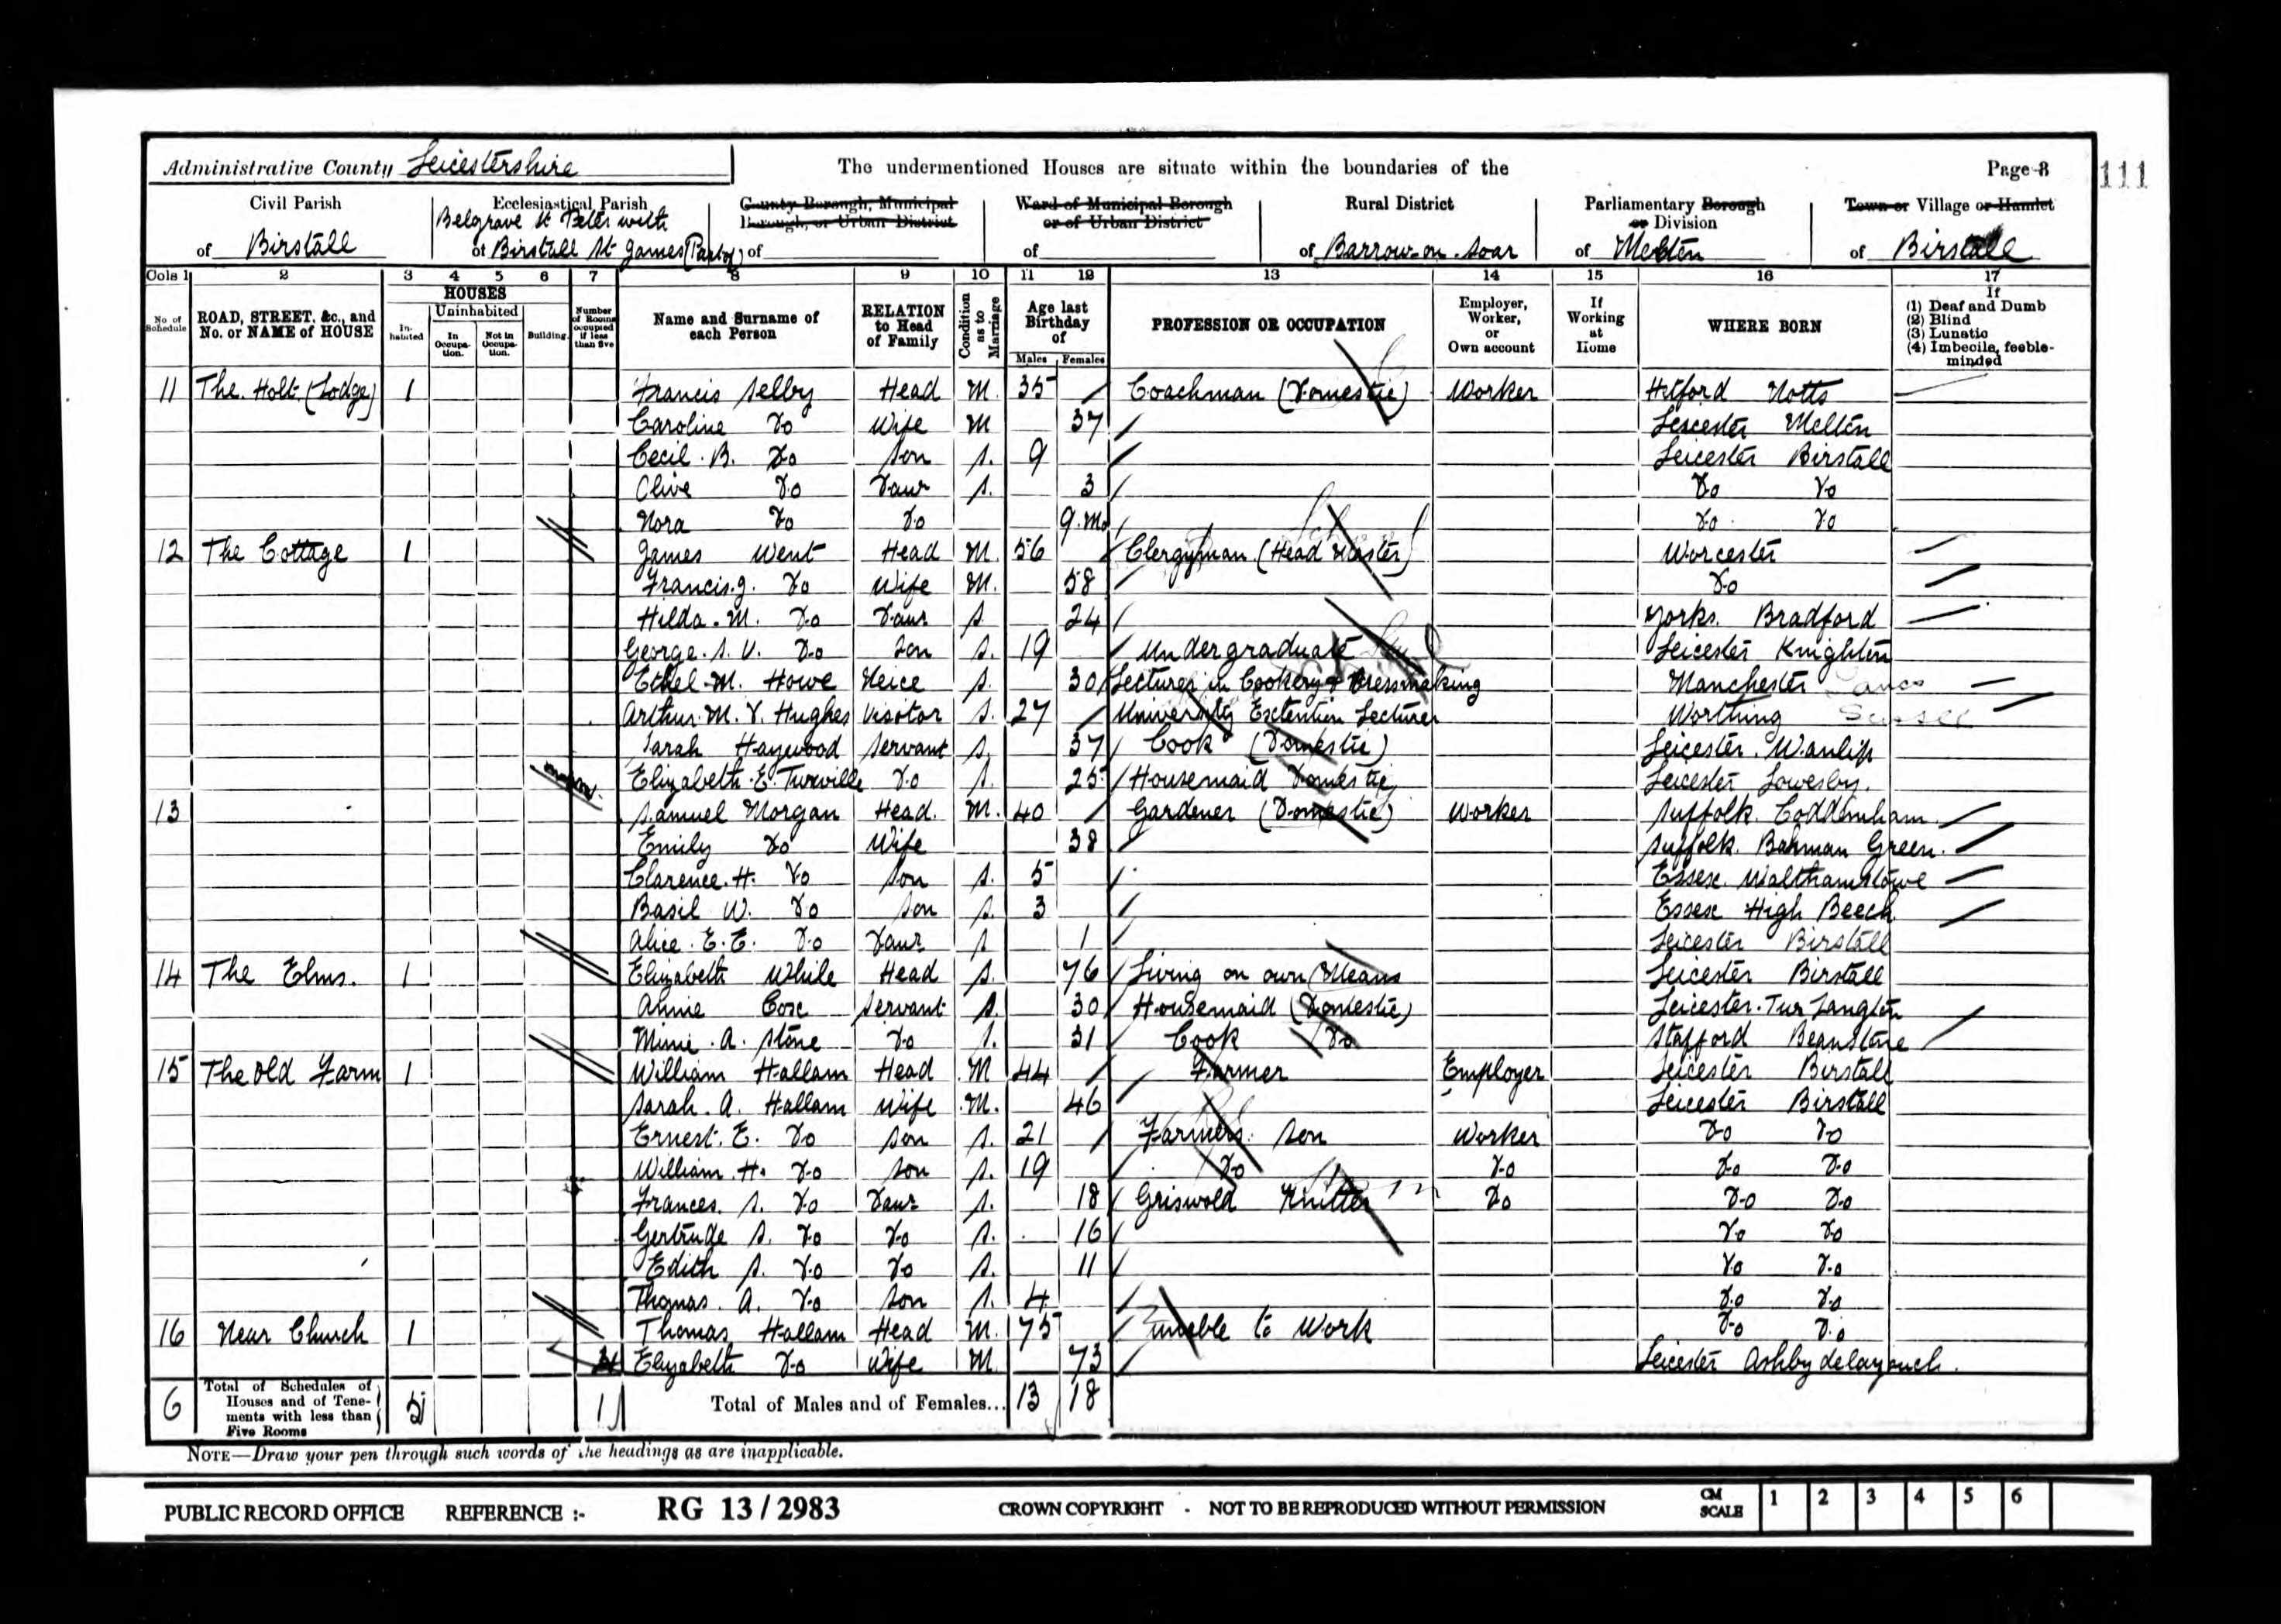 Administrative County Leicestershire
The undermentioned Houses are situate within the boundaries of the
Page 8
111
Civil Parish of Birstall
Ecclesiastical Parish of Belgrave St Peter with Birstall St James (Part of)
County Borough, Municipal Borough, or Urban District of
Ward of Municipal Borough or of Urban District of
Rural District of Barrow-on-Soar
Parliamentary Borough or Division of Melton
Town or Village or Hamlet of Birstall
Cols 1 2 3 4 5 6 7 8 9 10 11 12 13 14 15 16 17
No. of Schedule
ROAD, STREET, &c., and No. or NAME of HOUSE
HOUSES
Inhabited
Uninhabited
In Occupation.
Not in Occupation.
Building.
Number of Rooms occupied if less than five
Name and Surname of each Person
RELATION to Head of Family
Condition as to Marriage
Age last Birthday of
Males Females
PROFESSION OR OCCUPATION
Employer, Worker, or Own account
If Working at Home
WHERE BORN
If (1) Deaf and Dumb (2) Blind (3) Lunatic (4) Imbecile, feeble-minded
11 The Holt (Lodge) 1 Francis Selby Head M. 35 Coachman (Domestic) Worker Notts
Caroline Do Wife M 37 Leicester Melton
Cecil. B. Do Son S. 9 Leicester Birstall
Do Daur S. 3 Do Do
Nora Do Do 9.Mo Do Do
12 The Cottage 1 James Went Head M. 56 Clergyman (Head Master) Worcester
Francis. J. Do Wife M. 58 Do
Hilda. M. Do Daur S 24 Yorks. Bradford
George. S. V. Do Son S. 19 Undergraduate Leicester Knighton
Ethel. M. Howe Neice S. 30 Lectures in Cookery & Dressmaking Manchester Lancs
Arthur. M. D. Hughes Visitor S. 27 University Extention Lecturer Worthing Sussex
Sarah Haywood Servant S. 37 Cook (Domestic) Leicester. Wanlip
Elizabeth. E. Turville Do S. 25 Housemaid Domestic Leicester Lowesby.
13 Samuel Morgan Head. M. 40 Gardener (Domestic) Worker Suffolk. Coddenham.
Emily Do Wife 38 Suffolk. Green.
Clarence. H. Do Son S. 5 Essex. Walthamstowe
Basil W. Do Son S. 3 Essex High Beech.
Alice. E. E. Do Daur S 1 Leicester Birstall
14 The Elms. 1 Elizabeth While Head S. 76 Living on own Means Leicester Birstall
Annie Cox Servant S. 30 Housemaid (Domestic) Leicester. Tur Langton
Minie. A. Stone Do S. 31 Cook Do Stafford
15 The Old Farm 1 William Hallam Head M 44 Farmer Employer Leicester Birstall
Sarah. A. Hallam Wife M. 46 Leicester Birstall
Ernest. E. Do Son S. 21 Farmers Son Worker Do Do
William. H. Do Son S. 19 Do Do Do Do
Frances. S. Do Daur S. 18 Griswold Knitter Do Do Do
Gertrude S. Do Do S. 16 Do Do
Edith S. Do Do S. 11 Do Do
Thomas. A. Do Son S. 4 Do Do
16 Near Church 1 Thomas Hallam Head M. 75 Unable to Work Do Do
Elizabeth Do Wife M 73 Leicester Ashby delazouch.
6 Total of Schedules of Houses and of Tenements with less than Five Rooms 5 1 Total of Males and of Females... 13 18
NOTE—Draw your pen through such words of the headings as are inapplicable.
PUBLIC RECORD OFFICE REFERENCE :- RG 13/2983 CROWN COPYRIGHT - NOT TO BE REPRODUCED WITHOUT PERMISSION CM SCALE 1 2 3 4 5 6